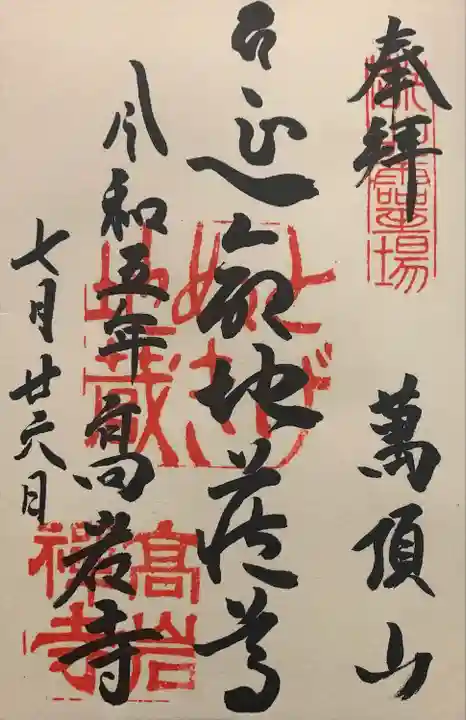 奉拝
萬頂山
延命地蔵尊
令和五年 高岩寺
七月廿六日
とげ
ぬき
地蔵
高岩
禅寺